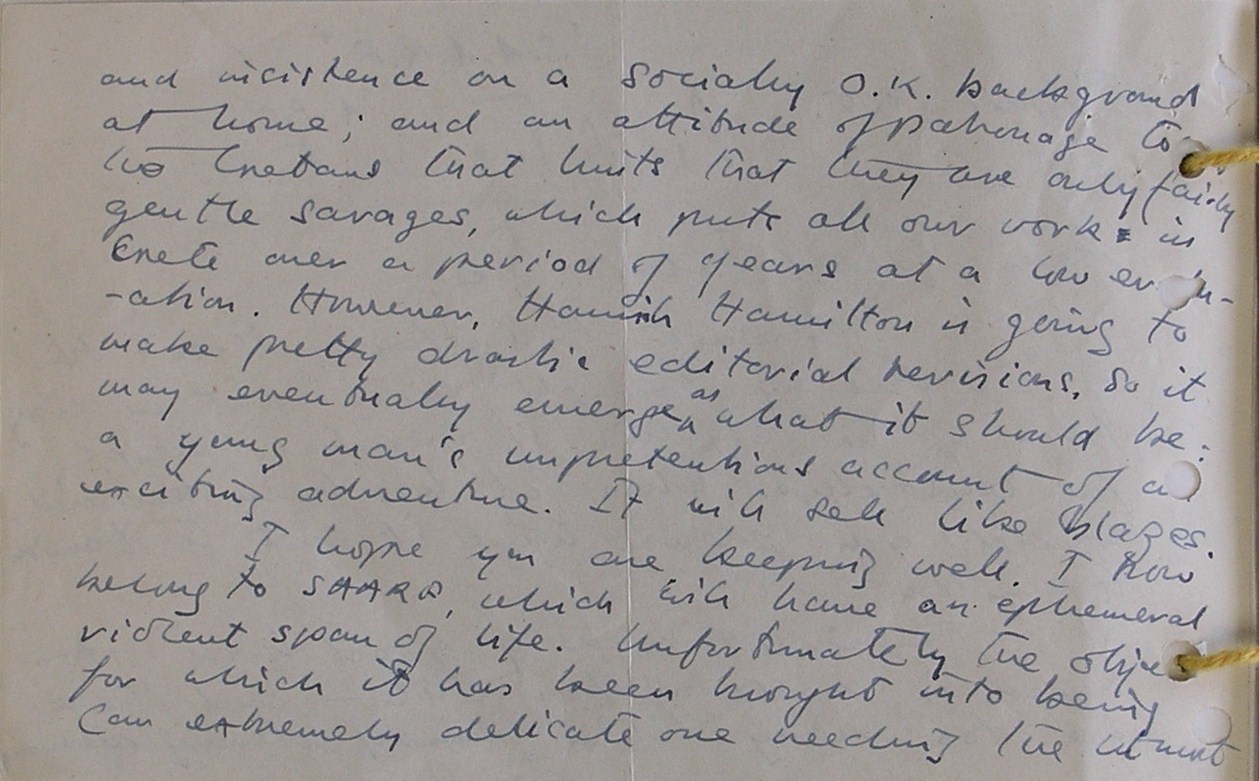 and insistence on a socially O.K. background
at home; and an attitude of patronage to
the Cretans that hints that they are only fairly
gentle savages, which puts all our work in
Crete over a period of years at a low
-ation. However, Hamish Hamilton is going to
make pretty drastic editorial revisions, so it
may eventually emerge as what it should be:
a young man's unpretentious account of an
exciting adventure. It will sell like blazes.
I hope you are keeping well. I now
belong to which will have an ephemeral
violent span of life. Unfortunately the obje
for which it has been brought into being
(an extremely delicate one needing the utmost